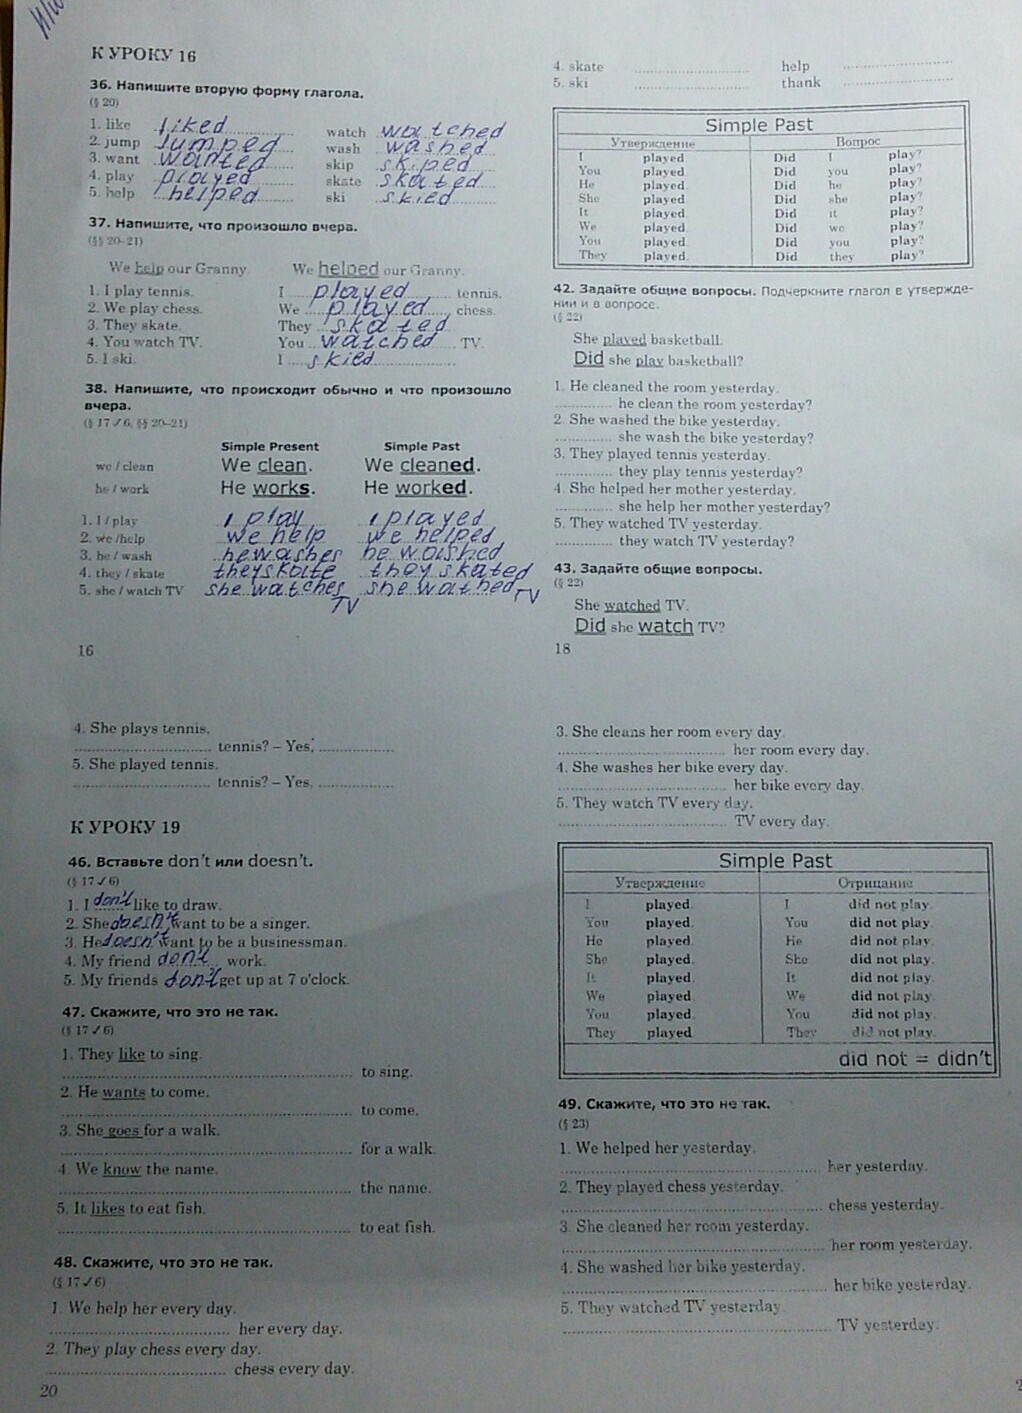 К УРОКУ 16
36. Напишите вторую форму глагола.
(§ 20)
1. like liked watch watched
2. jump jumped wash washed
3. want wanted skip skiped
4. play played skate skated
5. help helped ski skied
37. Напишите, что произошло вчера.
(§§ 20–21)
We help our Granny. We helped our Granny.
1. I play tennis. I played tennis.
2. We play chess. We played chess.
3. They skate. They skated
4. You watch TV. You watched TV.
5. I ski. I skied
38. Напишите, что происходит обычно и что произошло
вчера.
(§ 17 ✓ 6, §§ 20–21)
Simple Present Simple Past
we / clean We clean. We cleaned.
he / work He works. He worked.
1. I / play I play I played
2. we /help we help we helped
3. he / wash he washes he washed
4. they / skate they skate they skated
5. she / watch TV she watches TV she watched TV
16
4. skate help
5. ski thank
Simple Past
Утверждение Вопрос
I played Did I play?
You played. Did you play?
He played. Did he play?
She played. Did she play?
It played. Did it play?
We played. Did we play?
You played. Did you play?
They played. Did they play?
42. Задайте общие вопросы. Подчеркните глагол в утвержде-
нии и в вопросе.
(§ 22)
She played basketball.
Did she play basketball?
1. He cleaned the room yesterday.
he clean the room yesterday?
2. She washed the bike yesterday.
she wash the bike yesterday?
3. They played tennis yesterday.
they play tennis yesterday?
4. She helped her mother yesterday.
she help her mother yesterday?
5. They watched TV yesterday.
they watch TV yesterday?
43. Задайте общие вопросы.
(§ 22)
She watched TV.
Did she watch TV?
18
4. She plays tennis.
tennis? – Yes,
5. She played tennis.
tennis? – Yes,
К УРОКУ 19
46. Вставьте don't или doesn't.
(§ 17 ✓ 6)
1. I don't like to draw.
2. She doesn't want to be a singer.
3. He doesn't want to be a businessman.
4. My friend don't work.
5. My friends don't get up at 7 o'clock.
47. Скажите, что это не так.
(§ 17 ✓ 6)
1. They like to sing.
to sing.
2. He wants to come.
to come.
3. She goes for a walk.
for a walk.
4. We know the name.
the name.
5. It likes to eat fish.
to eat fish.
48. Скажите, что это не так.
(§ 17 ✓ 6)
1. We help her every day.
her every day.
2. They play chess every day.
chess every day.
20
3. She cleans her room every day.
her room every day.
4. She washes her bike every day.
her bike every day.
5. They watch TV every day.
TV every day.
Simple Past
Утверждение Отрицание
I played. I did not play.
You played. You did not play.
He played. He did not play.
She played. She did not play.
It played. It did not play.
We played. We did not play.
You played. You did not play.
They played. They did not play.
did not = didn't
49. Скажите, что это не так.
(§ 23)
1. We helped her yesterday.
her yesterday.
2. They played chess yesterday.
chess yesterday.
3. She cleaned her room yesterday.
her room yesterday.
4. She washed her bike yesterday.
her bike yesterday.
5. They watched TV yesterday.
TV yesterday.